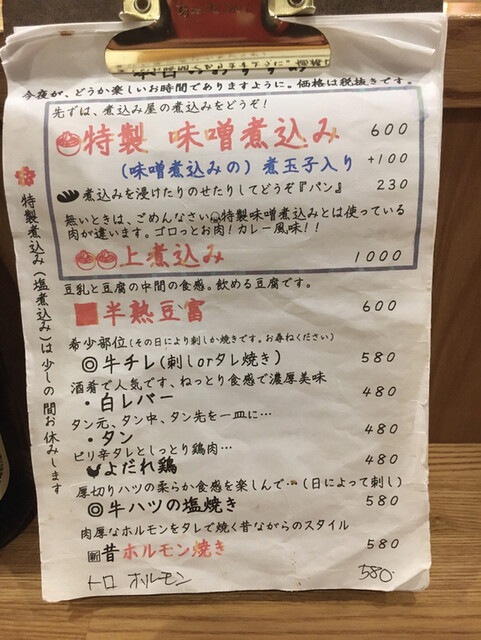 今夜が、どうか楽しいお時間でありますように。価格は税抜きです。
先ずは、煮込み屋の煮込みをどうぞ！
特製 味噌煮込み 600
(味噌煮込みの) 煮玉子入り +100
煮込みを浸けたりのせたりしてどうぞ『パン』 230
無いときは、ごめんなさい 特製味噌煮込みとは使っている
肉が違います。ゴロっとお肉！カレー風味！！
上煮込み 1000
豆乳と豆腐の中間の食感。飲める豆腐です。
半熟豆富 600
希少部位(その日により刺しか焼きです。お尋ねください)
◎牛チレ(刺しorタレ焼き) 580
酒肴で人気です、ねっとり食感で濃厚美味
・白レバー 480
タン元、タン中、タン先を一皿に…
・タン 480
ピリ辛タレとしっとり鶏肉…
よだれ鶏 480
厚切りハツの柔らか食感を楽しんで…(日によって刺し)
◎牛ハツの塩焼き 580
肉厚なホルモンをタレで焼く昔ながらのスタイル
新 昔ホルモン焼き 580
トロ ホルモン 580
特製煮込み(塩煮込み)は少しの間お休みします